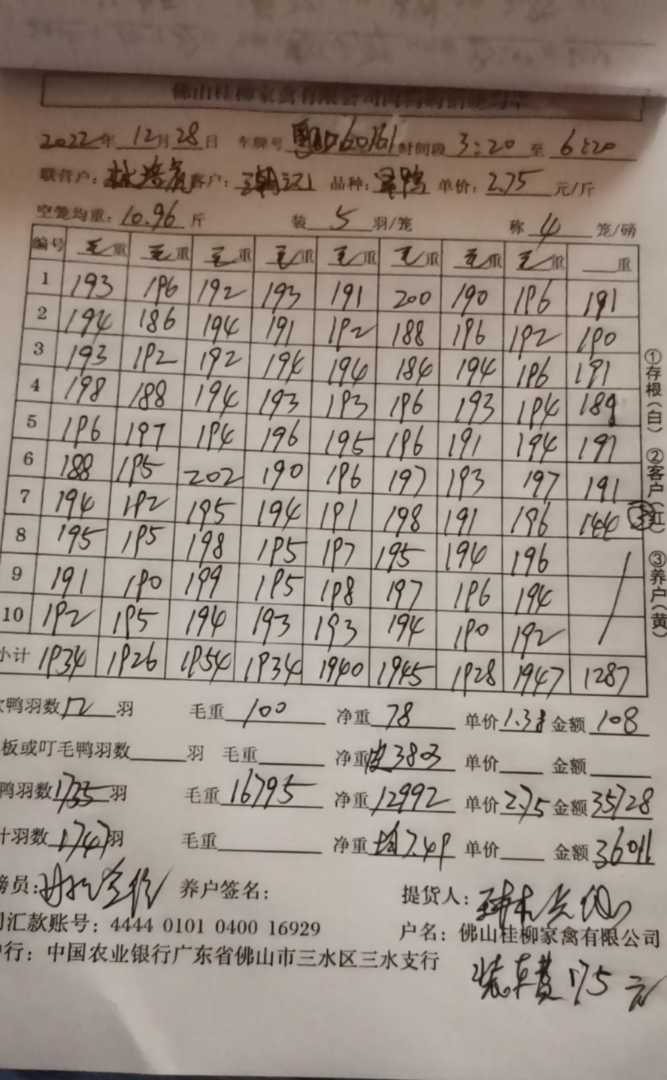 2022年 12月28日 车牌号 粤 60761 时间段 3:20 至 6:20
联营户: 客户: 品种: 鸭 单价: 2.75 元/斤
空笼均重: 10.96 斤 装 5 羽/笼 称 4 笼/磅
编号 毛重 毛重 毛重 毛重 毛重 毛重 毛重 毛重 重
1 193 196 192 193 191 200 190 196 191
2 194 186 194 191 192 188 196 192 190
3 193 192 192 194 194 184 194 196 191
4 198 188 194 193 193 196 193 194 189
5 196 197 194 196 195 196 191 194 191
6 188 195 202 190 196 197 193 197 191
7 194 192 195 194 191 198 191 196 144 ③
8 195 195 198 195 197 195 194 196
9 191 190 199 195 198 197 196 194
10 192 195 194 193 193 194 190 192
小计 1934 1926 1954 1934 1940 1945 1928 1947 1287
①存根(白) ②客户(红) ③养户(黄)
鸭羽数 12 羽 毛重 100 净重 78 单价 1.38 金额 108
板或叮毛鸭羽数 羽 毛重 净重 皮3803 单价 金额
鸭羽数 1735 羽 毛重 16795 净重 12992 单价 2.75 金额 35728
计羽数 1747 羽 毛重 净重 均7.49 单价 金额 36011
员: 养户签名: 提货人:
汇款账号: 4444 0101 0400 16929 户名: 佛山桂柳家禽有限公司
行: 中国农业银行广东省佛山市三水区三水支行
装车费175元